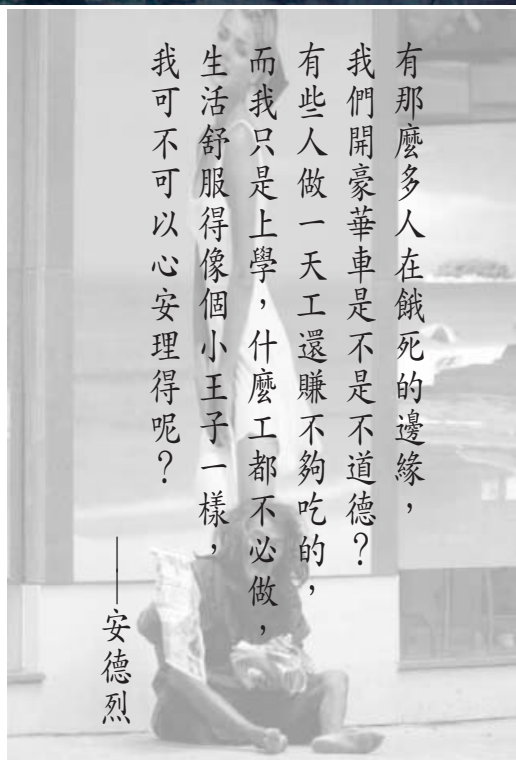 有那麼多人在餓死的邊緣，
我們開豪華車是不是不道德？
有些人做一天工還賺不夠吃的，
而我只是上學，什麼工都不必做，
生活舒服得像個小王子一樣，
我可不可以心安理得呢？
——安德烈